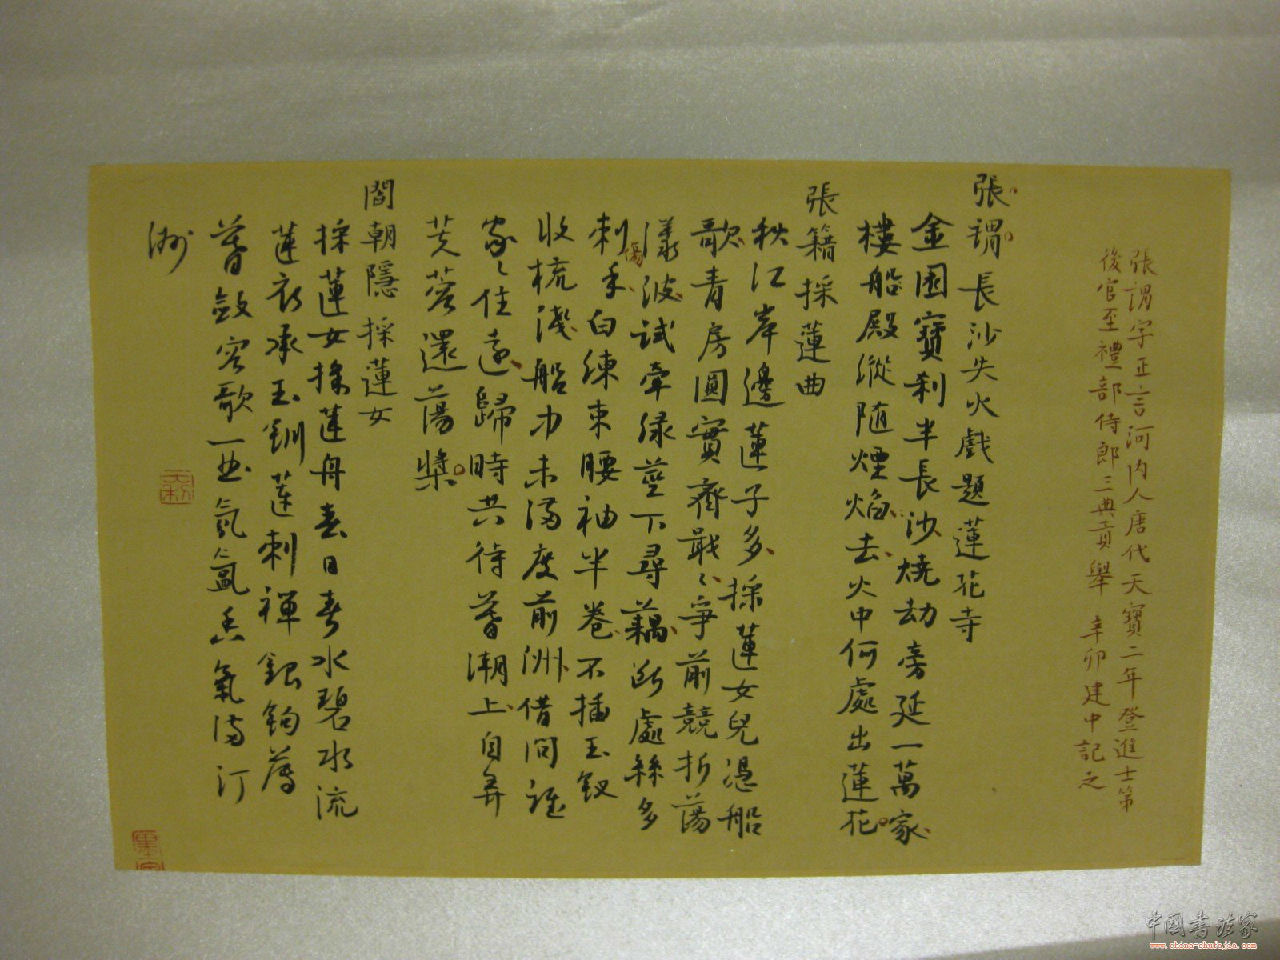 張謂字正言河內人唐代天寶二年登進士第
後官至禮部侍郎三典貢舉 辛卯建中記之
張謂長沙失火戲題蓮花寺
金園寶剎半長沙燒劫旁延一萬家
樓船殿縱隨煙焰去火中何處出蓮花
張籍採蓮曲
秋江岸邊蓮子多採蓮女兒憑船
歌青房圓實齊戢戢爭前競折蕩
漾波試牽綠莖下尋藕斷處絲多
刺傷手白練束腰袖半卷不插玉釵
收梳淺船中未滿度前洲借問誰
家家住遠歸時共待暮潮上自弄
芙蓉還蕩槳
閻朝隱採蓮女
採蓮女採蓮舟春日春水碧水流
蓮衣承玉釧蓮刺禪銀鉤薄
暮斂容歌一曲氛氳香氣滿汀
洲
中國書法家
www.china-shufajia.com